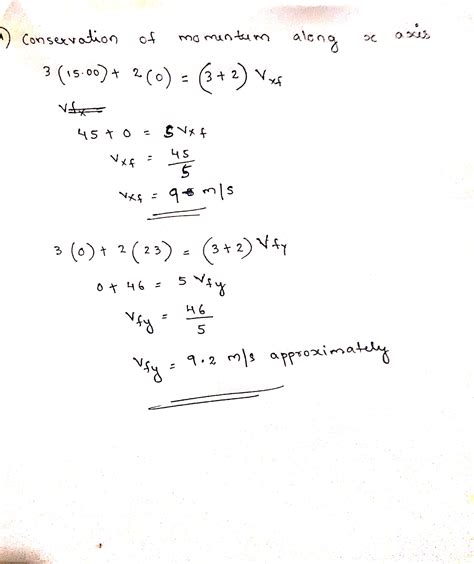 a) conservation of momentum along x axis
3(15.00) + 2(0) = (3+2) Vxf
45 + 0 = 5Vxf
Vxf = 45/5
Vxf = 9 m/s
3(0) + 2(23) = (3+2) Vfy
0 + 46 = 5 Vfy
Vfy = 46/5
Vfy = 9.2 m/s approximately